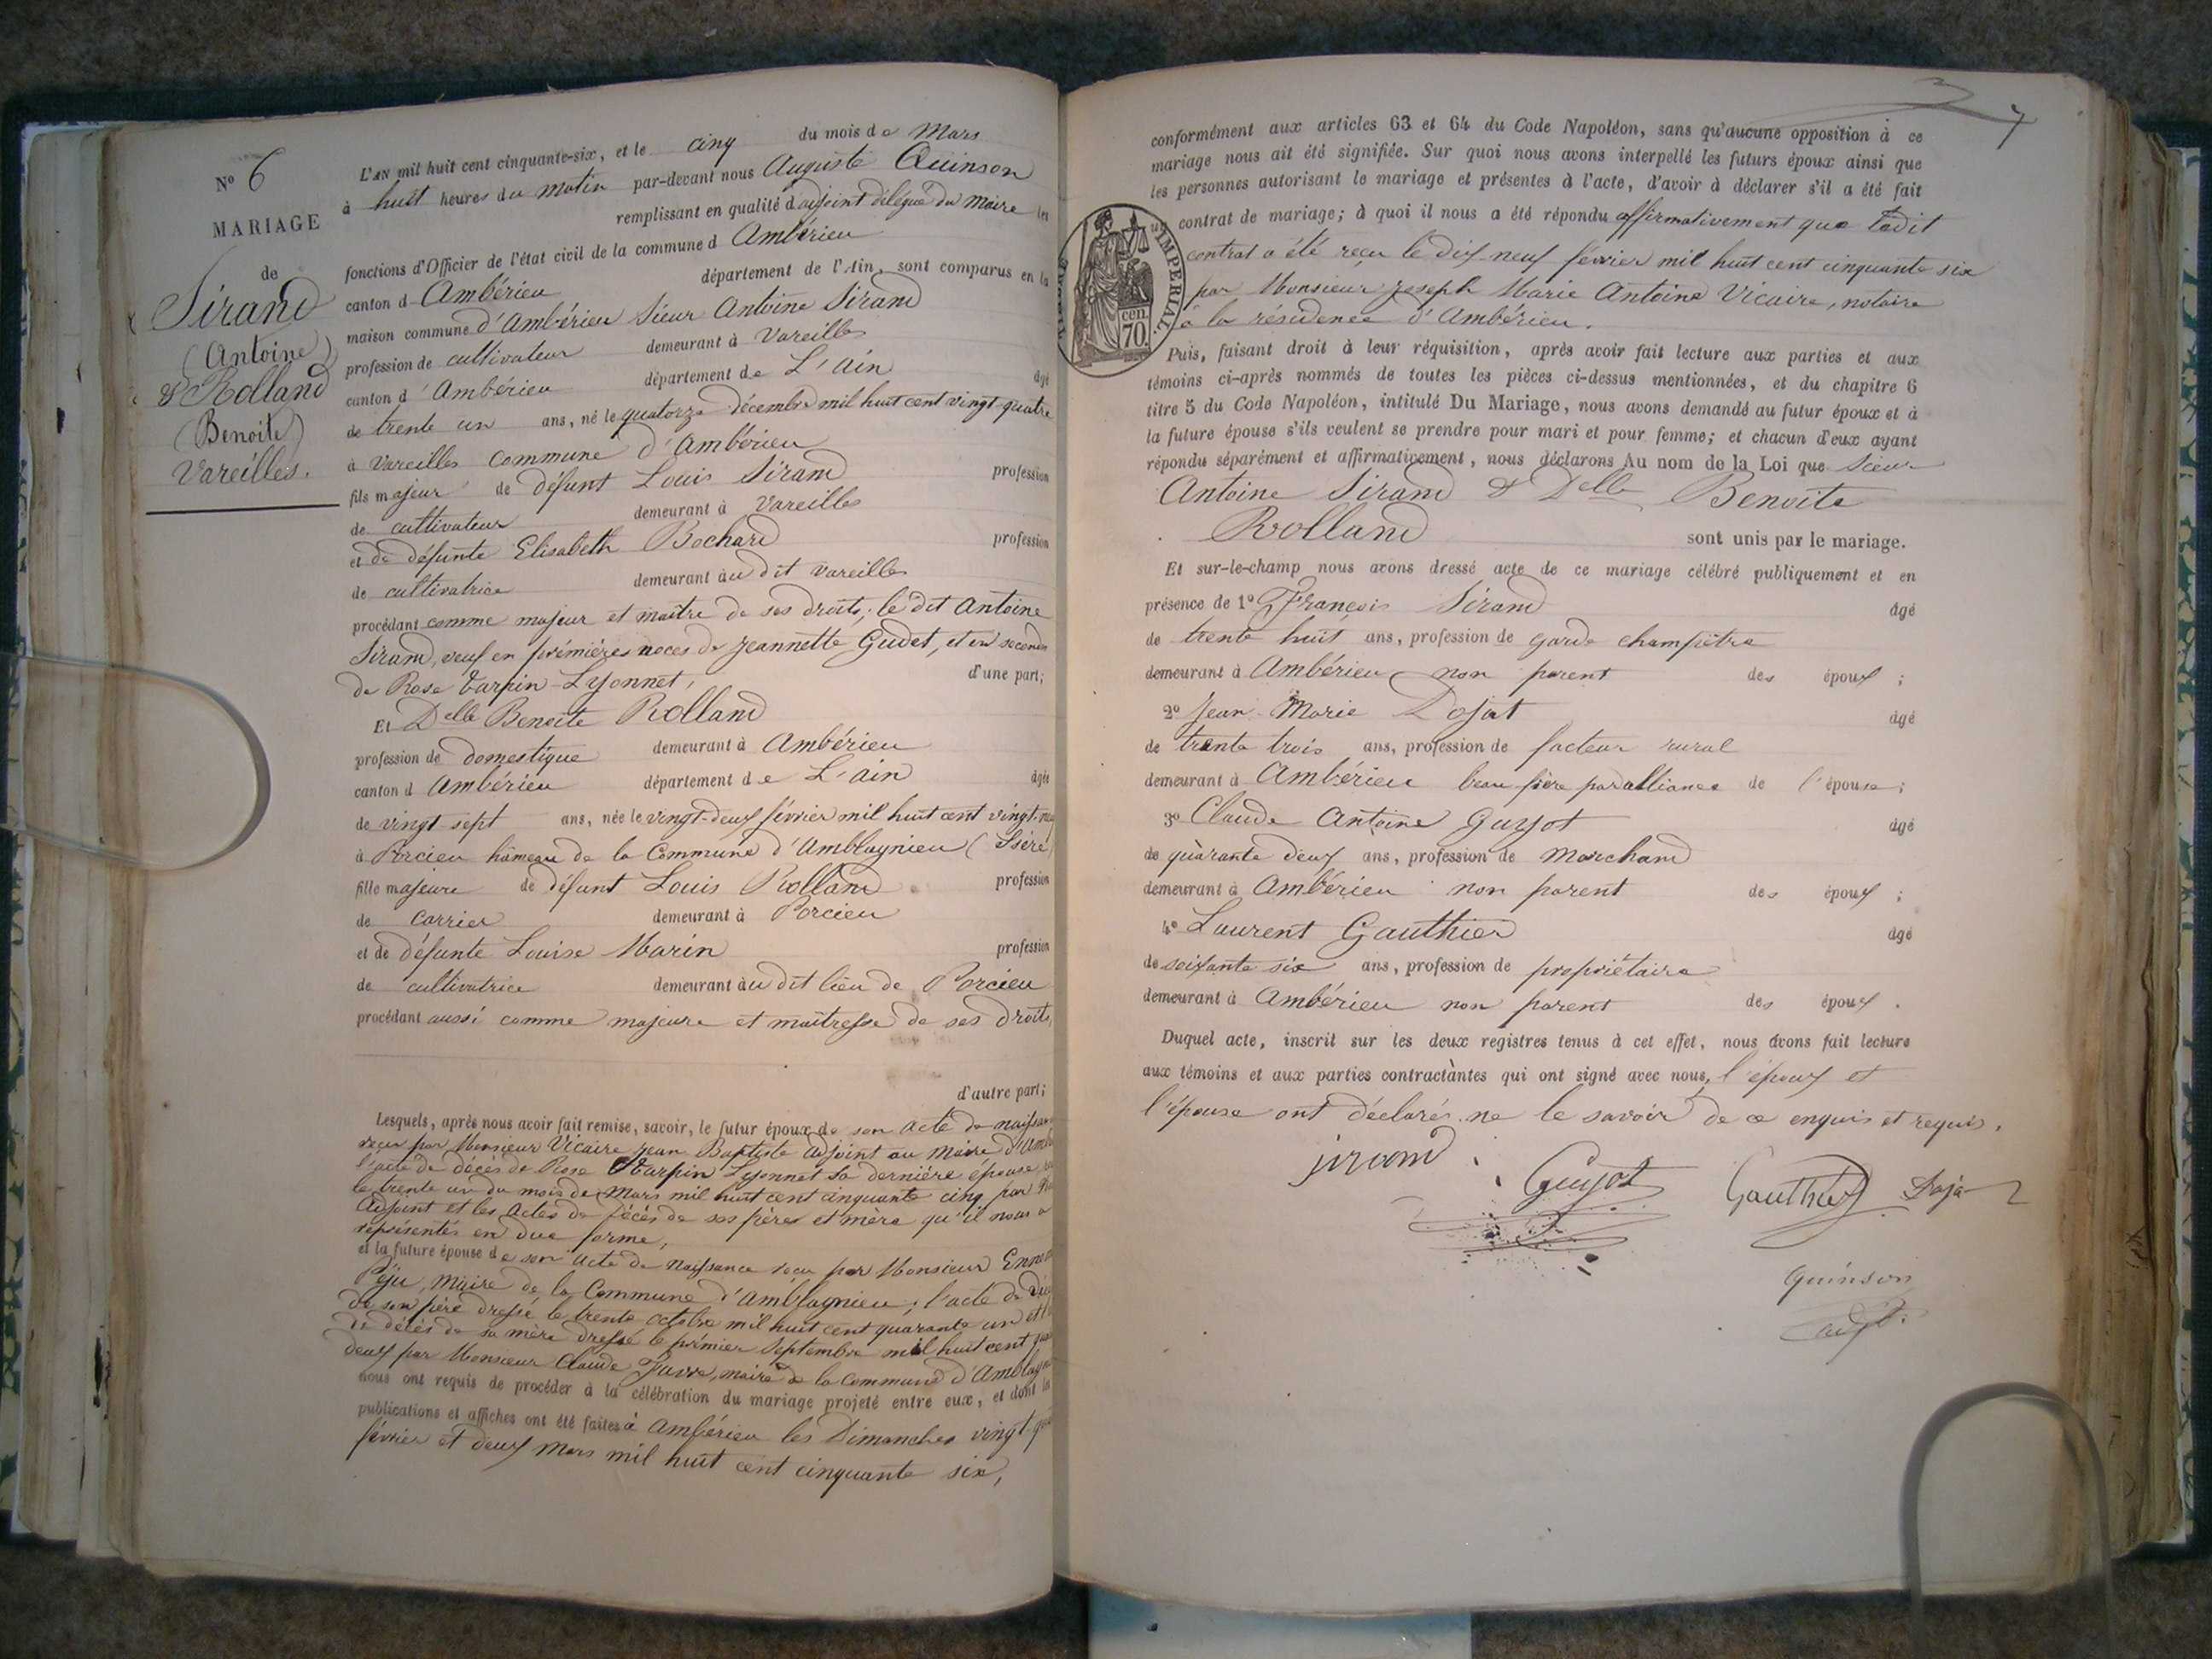 N° 6
MARIAGE
de
Sirand
(Antoine)
& Rolland
(Benoite)
Vareilles.
L'AN mil huit cent cinquante-six, et le cinq du mois de Mars
à huit heures du matin par-devant nous Auguste Quinson
remplissant en qualité d'adjoint délégué du Maire les
fonctions d'Officier de l'état civil de la commune d Ambérieu
canton d Ambérieu département de l'Ain, sont comparus en la
maison commune d'Ambérieu Sieur Antoine Sirand
profession de cultivateur demeurant à Vareilles
canton d'Ambérieu département de L'ain âgé
de trente un ans, né le quatorze décembre mil huit cent vingt quatre
à Vareilles commune d'Ambérieu
fils majeur de défunt Louis Sirand profession
de cultivateur demeurant à Vareilles
et de défunte Elisabeth Bochard profession
de cultivatrice demeurant au dit Vareilles
procédant comme majeur et maître de ses droits; le dit Antoine
Sirand, veuf en prémières noces de Jeannette Gudet, et en secondes
de Rose Tarpin-Lyonnet, d'une part;
Et Delle Benoite Rolland
profession de domestique demeurant à Ambérieu
canton d Ambérieu département de L'ain âgée
de vingt sept ans, née le vingt-deux février mil huit cent vingt-
à Porcieu hameau de la Commune d'Amblagnieu (Isère)
fille majeure de défunt Louis Rolland profession
de carrier demeurant à Porcieu
et de défunte Louise Marin profession
de cultivatrice demeurant au dit lieu de Porcieu
procédant aussi comme majeure et maîtresse de ses droits,
d'autre part;
Lesquels, après nous avoir fait remise, savoir, le futur époux de son acte de
reçu par Monsieur Vicaire Jean Baptiste adjoint au Maire
l'acte de décès de Rose Tarpin Lyonnet sa dernière épouse
le trente un du mois de Mars mil huit cent cinquante cinq par
Adjoint et les Actes de décès de ses pères et mère qu'il nous a
représentés en due forme,
et la future épouse de son acte de naissance reçu par Monsieur
Péju, Maire de la Commune d'Amblagnieu; l'acte de
de son père dressé le trente octobre mil huit cent quarante un et
de décès de sa mère dressé le prémier Septembre mil huit cent
deux par Monsieur Claude Favre, maire de la Commune
nous ont requis de procéder à la célébration du mariage projeté entre eux, et dont les
publications et affiches ont été faites à Ambérieu les Dimanches vingt-
février et deux Mars mil huit cent cinquante six,
7
conformément aux articles 63 et 64 du Code Napoléon, sans qu'aucune opposition à ce
mariage nous ait été signifiée. Sur quoi nous avons interpellé les futurs époux ainsi que
les personnes autorisant le mariage et présentes à l'acte, d'avoir à déclarer s'il a été fait
un contrat de mariage; à quoi il nous a été répondu affirmativement que ledit
contrat a été reçu le dix neuf février mil huit cent cinquante six
par Monsieur Joseph Marie Antoine Vicaire, notaire
à la résidence d'Ambérieu.
IMPERIAL.
cen.
70.
Puis, faisant droit à leur réquisition, après avoir fait lecture aux parties et aux
témoins ci-après nommés de toutes les pièces ci-dessus mentionnées, et du chapitre 6
titre 5 du Code Napoléon, intitulé Du Mariage, nous avons demandé au futur époux et à
la future épouse s'ils veulent se prendre pour mari et pour femme; et chacun d'eux ayant
répondu séparément et affirmativement, nous déclarons Au nom de la Loi que Sieur
Antoine Sirand & Delle Benoite
Rolland sont unis par le mariage.
Et sur-le-champ nous avons dressé acte de ce mariage célébré publiquement et en
présence de 1° François Sirand âgé
de trente huit ans, profession de garde champêtre
demeurant à Ambérieu non parent des époux ;
2° Jean-Marie Dojat âgé
de trente trois ans, profession de facteur rural
demeurant à Ambérieu beau frère par alliance de l'épouse ;
3° Claude Antoine Guyot âgé
de quarante deux ans, profession de Marchand
demeurant à Ambérieu non parent des époux ;
4° Laurent Gauthier âgé
de soixante six ans, profession de propriétaire
demeurant à Ambérieu non parent des époux .
Duquel acte, inscrit sur les deux registres tenus à cet effet, nous avons fait lecture
aux témoins et aux parties contractantes qui ont signé avec nous, l'époux et
l'épouse ont déclarés ne le savoir de ce enquis et requis.
sirand
Guyot
Gauthier
Doja
Quinson
adjt.